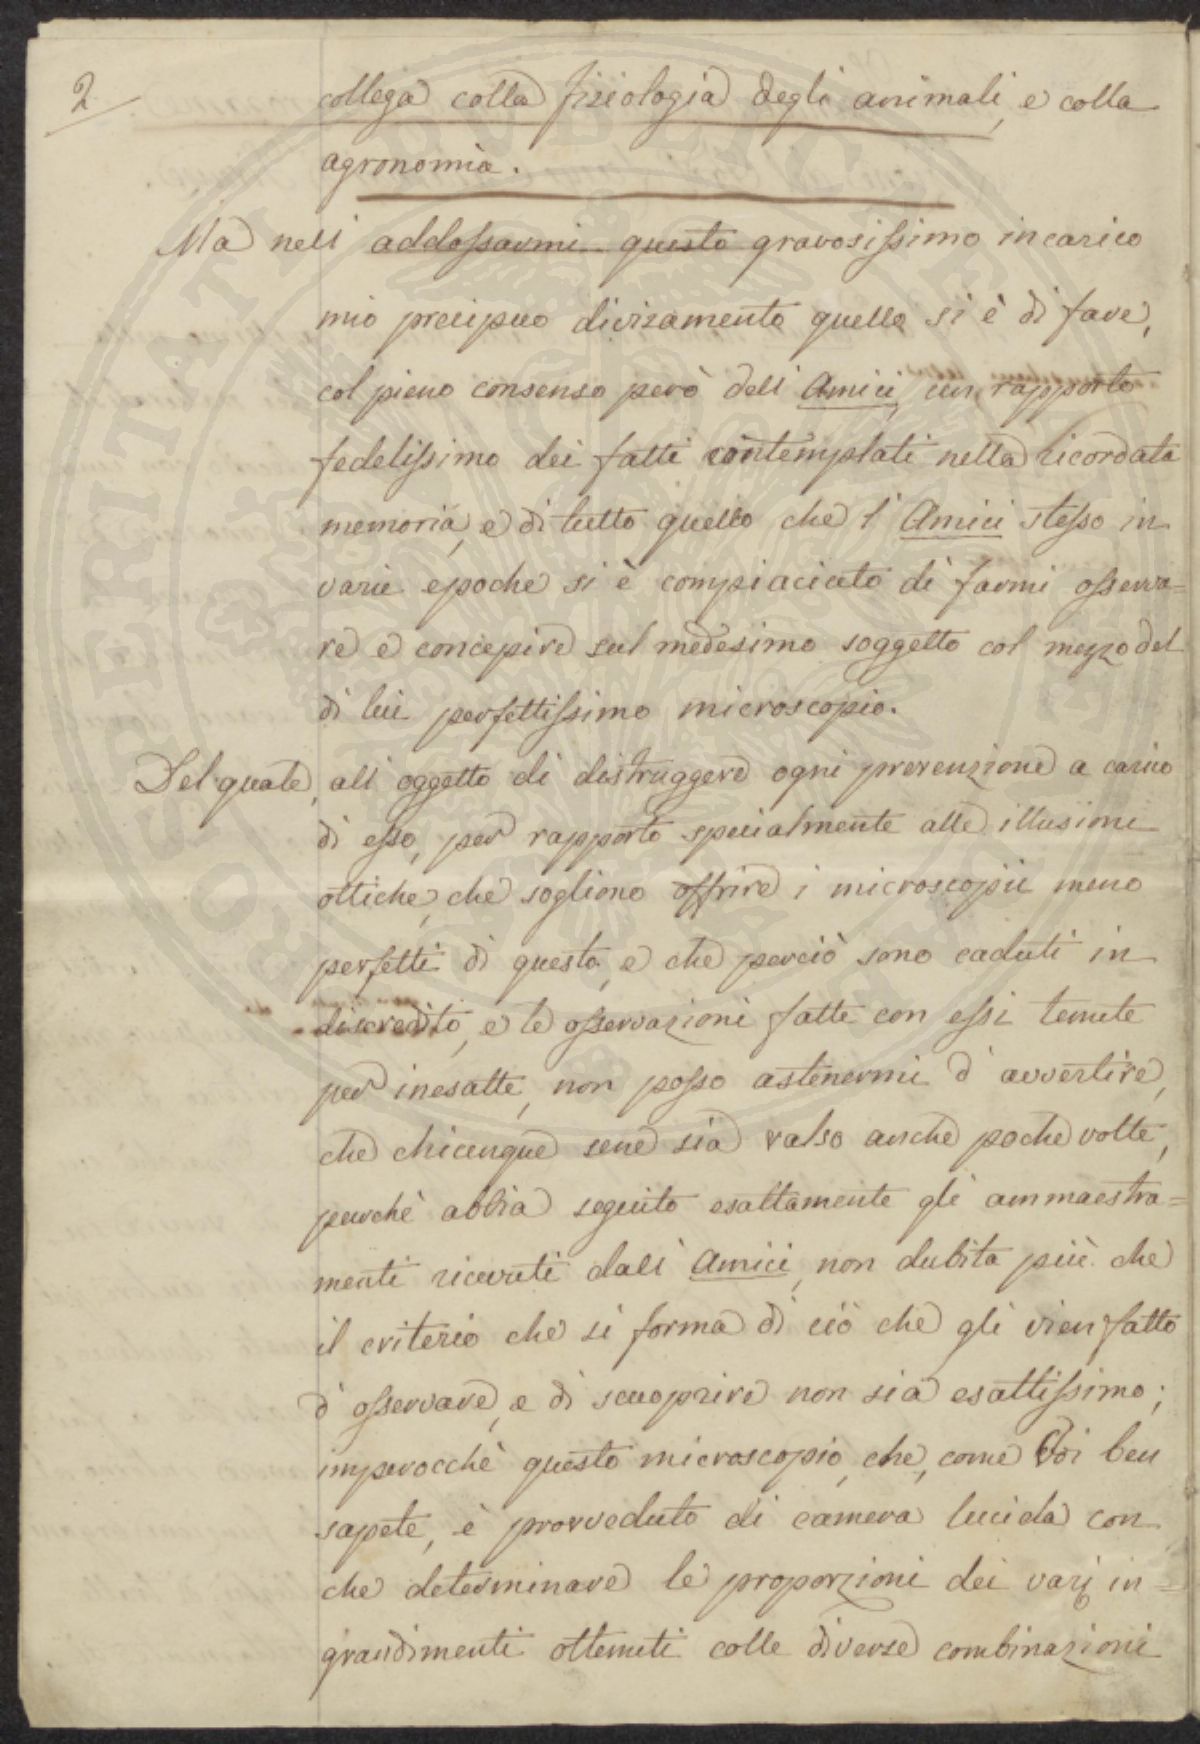 2
collega colla fisiologia degli animali, e colla
agronomia.
Ma nell' addossarmi questo gravosissimo incarico
mio precipuo divisamento quello si è di fare,
col pieno consenso però dell' Amici, un rapporto
fedelissimo dei fatti contemplati nella ricordata
memoria, e di tutto quello che l' Amici stesso in
varie epoche si è compiaciuto di farmi osserva=
re e concepire sul medesimo soggetto col mezzo del
di lui perfettissimo microscopio.
Del quale, all' oggetto di distruggere ogni prevenzione a carico
di esso, per rapporto specialmente alle illusioni
ottiche, che sogliono offrire i microscopii meno
perfetti di questo, e che perciò sono caduti in
discredito, e le osservazioni fatte con essi temute
per inesatte, non posso astenermi d' avvertire,
che chiunque sene sia valso anche poche volte,
purchè abbia seguito esattamente gli ammaestra=
menti ricevuti dall' Amici, non dubita più che
il criterio che si forma di ciò che gli vien fatto
d' osservare, e di scuoprire non sia esattissimo;
imperocchè questo microscopio, che, come Voi ben
sapete, è provveduto di camera lucida con
che determinare le proporzioni dei varj in=
grandimenti ottenuti colle diverse combinazioni
PROSPERITATI PVBLICAE